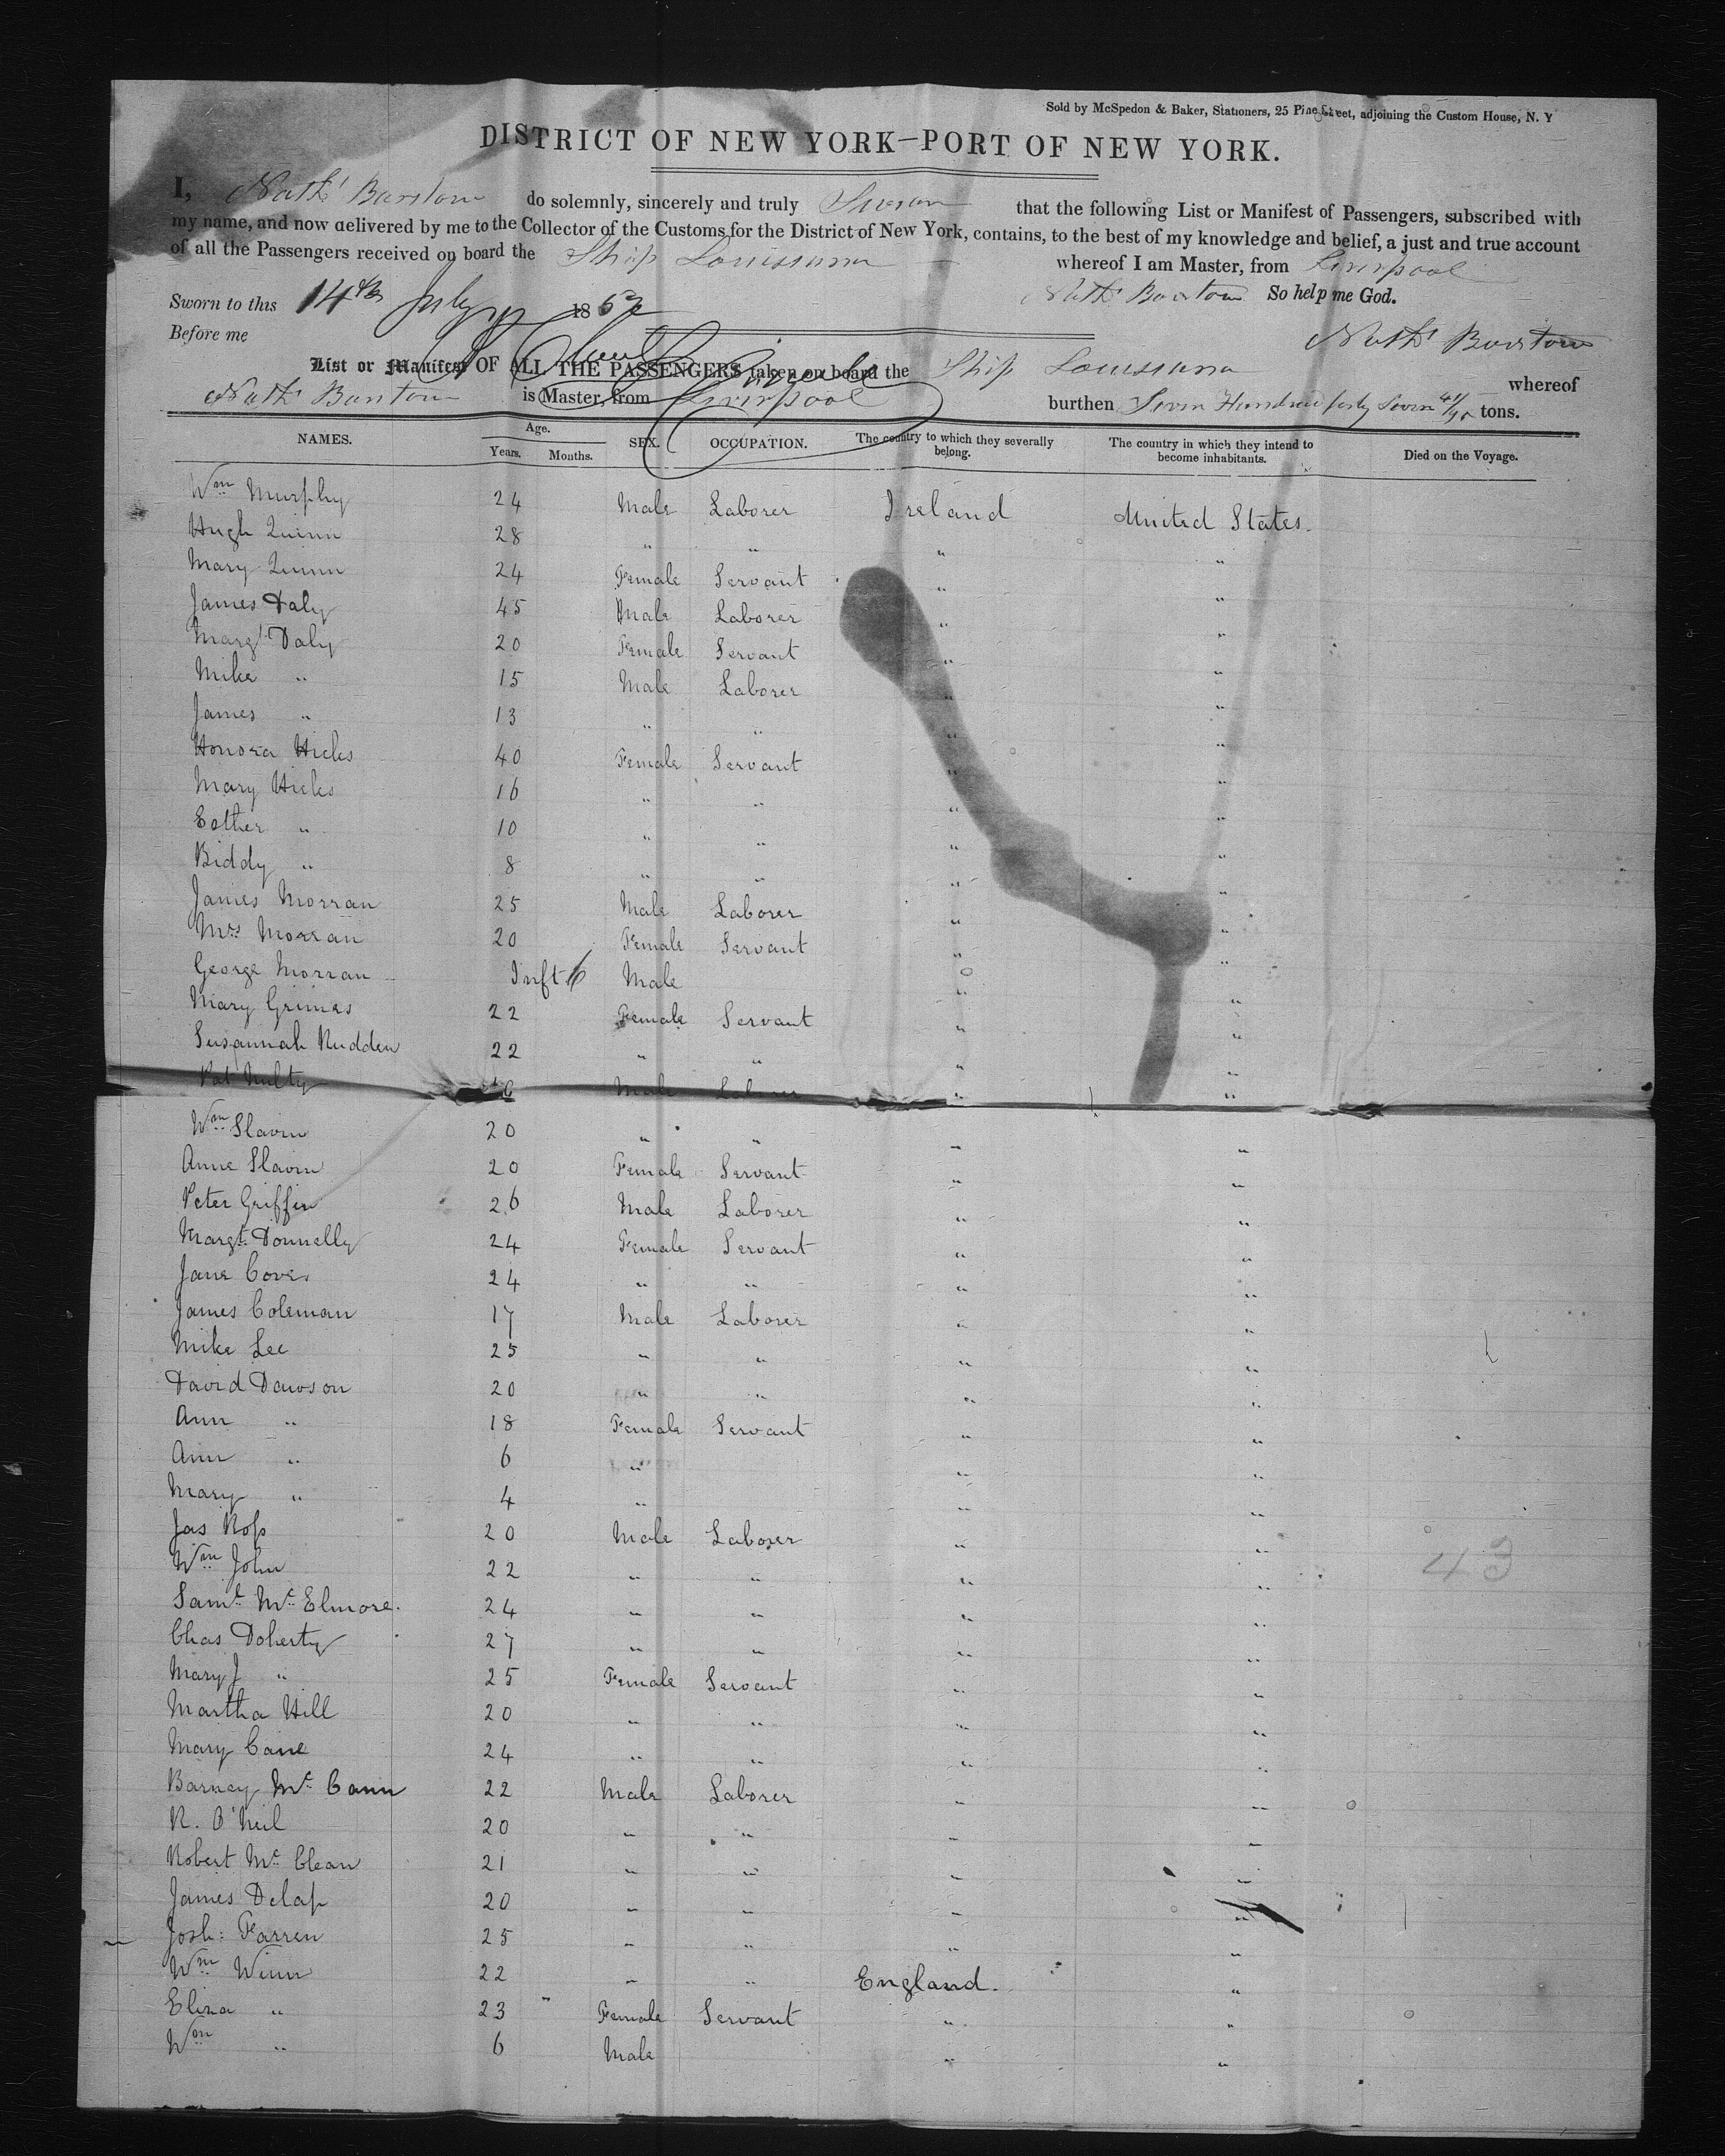 Sold by McSpedon & Baker, Stationers, 25 Pine Street, adjoining the Custom House, N. Y
DISTRICT OF NEW YORK—PORT OF NEW YORK.
I, Nathl Barstow do solemnly, sincerely and truly Swear that the following List or Manifest of Passengers, subscribed with
my name, and now delivered by me to the Collector of the Customs for the District of New York, contains, to the best of my knowledge and belief, a just and true account
of all the Passengers received on board the Ship Louisiana whereof I am Master, from Liverpool
Sworn to this 14th July 186 Nathl Barstow So help me God.
Before me Nathl Barstow
List or Manifest OF ALL THE PASSENGERS taken on board the Ship Louisiana whereof
Nathl Barstow is Master, from Liverpool burthen Seven Hundred forty Seven tons.
NAMES. Age. Years. Months. SEX. OCCUPATION. The country to which they severally belong. The country in which they intend to become inhabitants. Died on the Voyage.
Wm Murphy 24 Male Laborer Ireland United States.
Hugh Quinn 28 " " " "
Mary Quinn 24 Female Servant " "
James Daly 45 Male Laborer " "
Margt Daly 20 Female Servant " "
Mike " 15 Male Laborer " "
James " 13 " " " "
Honora Hicks 40 Female Servant " "
Mary Hicks 16 " " " "
Esther " 10 " " " "
Biddy " 8 " " " "
James Morran 25 Male Laborer " "
Mrs Morran 20 Female Servant " "
George Morran Inft 6 Male " "
Mary Grimes 22 Female Servant " "
Susannah Rudden 22 " " " "
Pat Nulty Male Laborer " "
Wm Slavin 20 " " " "
Anne Slavin 20 Female Servant " "
Peter Griffin 26 Male Laborer " "
Margt Donnelly 24 Female Servant " "
Jane Cove 24 " " " "
James Coleman 17 Male Laborer " "
Mike Lee 25 " " " "
David Dawson 20 " " " "
Ann " 18 Female Servant " "
Ann " 6 " " "
Mary " 4 " " "
Jas Ross 20 Male Laborer " "
Wm John 22 " " " "
Saml McElmore. 24 " " " "
Chas Doherty 27 " " " "
Mary J " 25 Female Servant " "
Martha Hill 20 " " " "
Mary Cane 24 " " " "
Barney McCann 22 Male Laborer " "
R. O'Neil 20 " " " "
Robert McClean 21 " " " "
James Delap 20 " " " "
Josh: Farren 25 " " " "
Wm Winn 22 " " England. "
Eliza " 23 " Female Servant " "
Wm " 6 Male " "
43